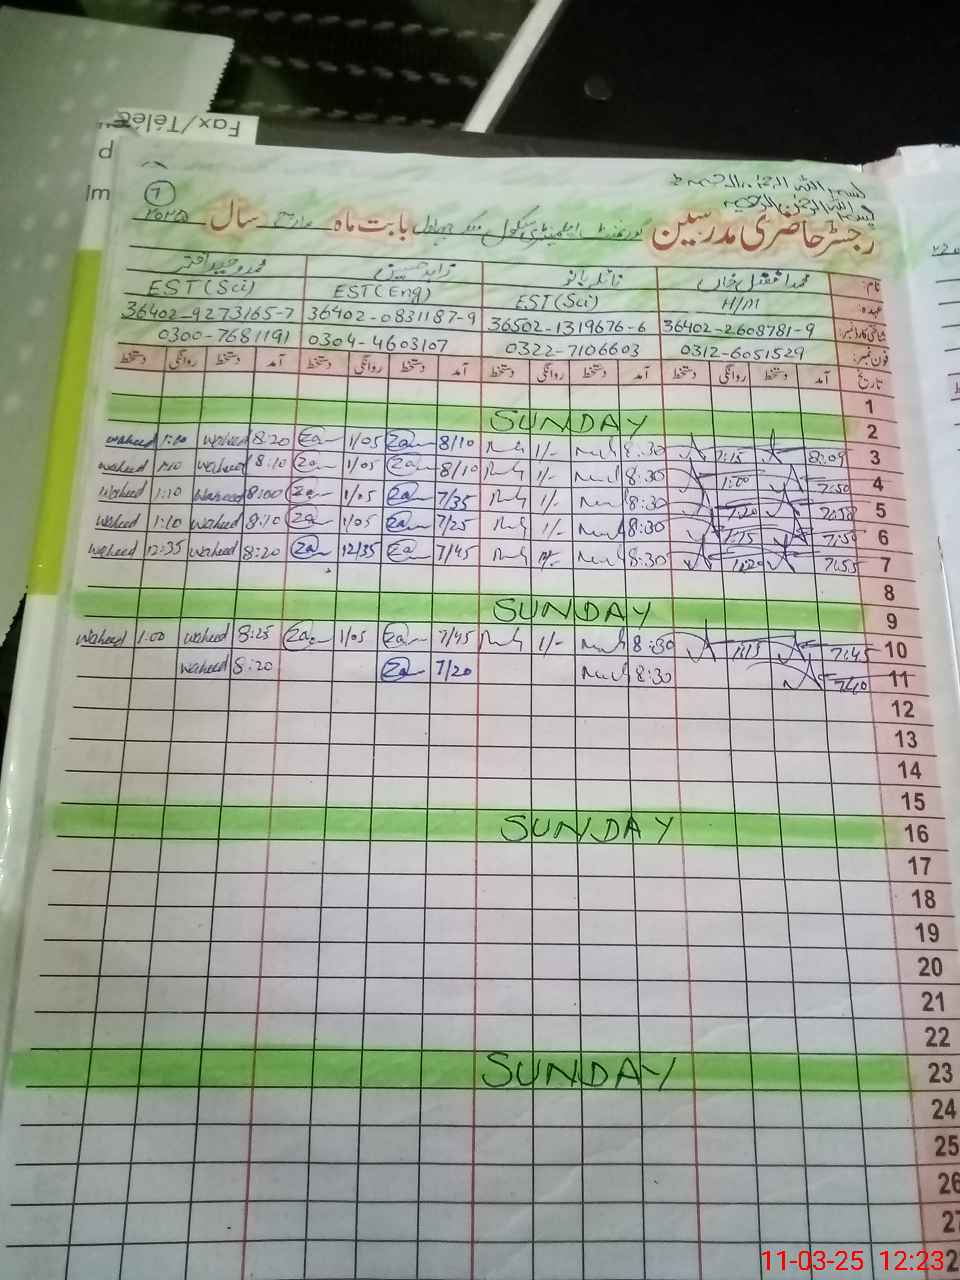 Fax/Téléc
بسم اللہ الرحمٰن الرحیم
بسم اللہ الرحمٰن الرحیم
1
رجسٹر حاضری مدرسین گورنمنٹ ایلیمنٹری سکول بابت ماہ مارچ سال ۲۰۲۵
نام: محمد افضل خاں نائلہ بانو زاہد حسین محمد وحید اختر
عہدہ: H/M EST(Sci) EST(Eng) EST(Sci)
شناختی کارڈ نمبر: 36402-2608781-9 36502-1319676-6 36402-0831187-9 36402-9273165-7
فون نمبر: 0312-6051529 0322-7106603 0304-4603107 0300-7681191
تاریخ آمد دستخط روانگی دستخط آمد دستخط روانگی دستخط آمد دستخط روانگی دستخط آمد دستخط روانگی دستخط
1
SUNDAY 2
waheed 1:10 waheed 8:20 Za 1/05 Za 8/10 1/- 8:30 1:15 8:09 3
waheed 1:10 waheed 8:10 Za 1/05 Za 8/10 1/- 8:30 1:00 7:50 4
waheed 1:10 waheed 8:00 Za 1/05 Za 7/35 1/- 8:30 1:20 7:58 5
waheed 1:10 waheed 8:10 Za 1/05 Za 7/25 1/- 8:30 1:15 7:50 6
waheed 12:35 waheed 8:20 Za 12/35 Za 7/45 8:30 7:55 7
8
SUNDAY 9
waheed 1:00 waheed 8:25 Za 1/05 Za 7/45 1/- 8:30 1:15 7:45 10
waheed 8:20 Za 7/20 8:30 7:40 11
12
13
14
15
SUNDAY 16
17
18
19
20
21
22
SUNDAY 23
24
25
26
27
11-03-25 12:23